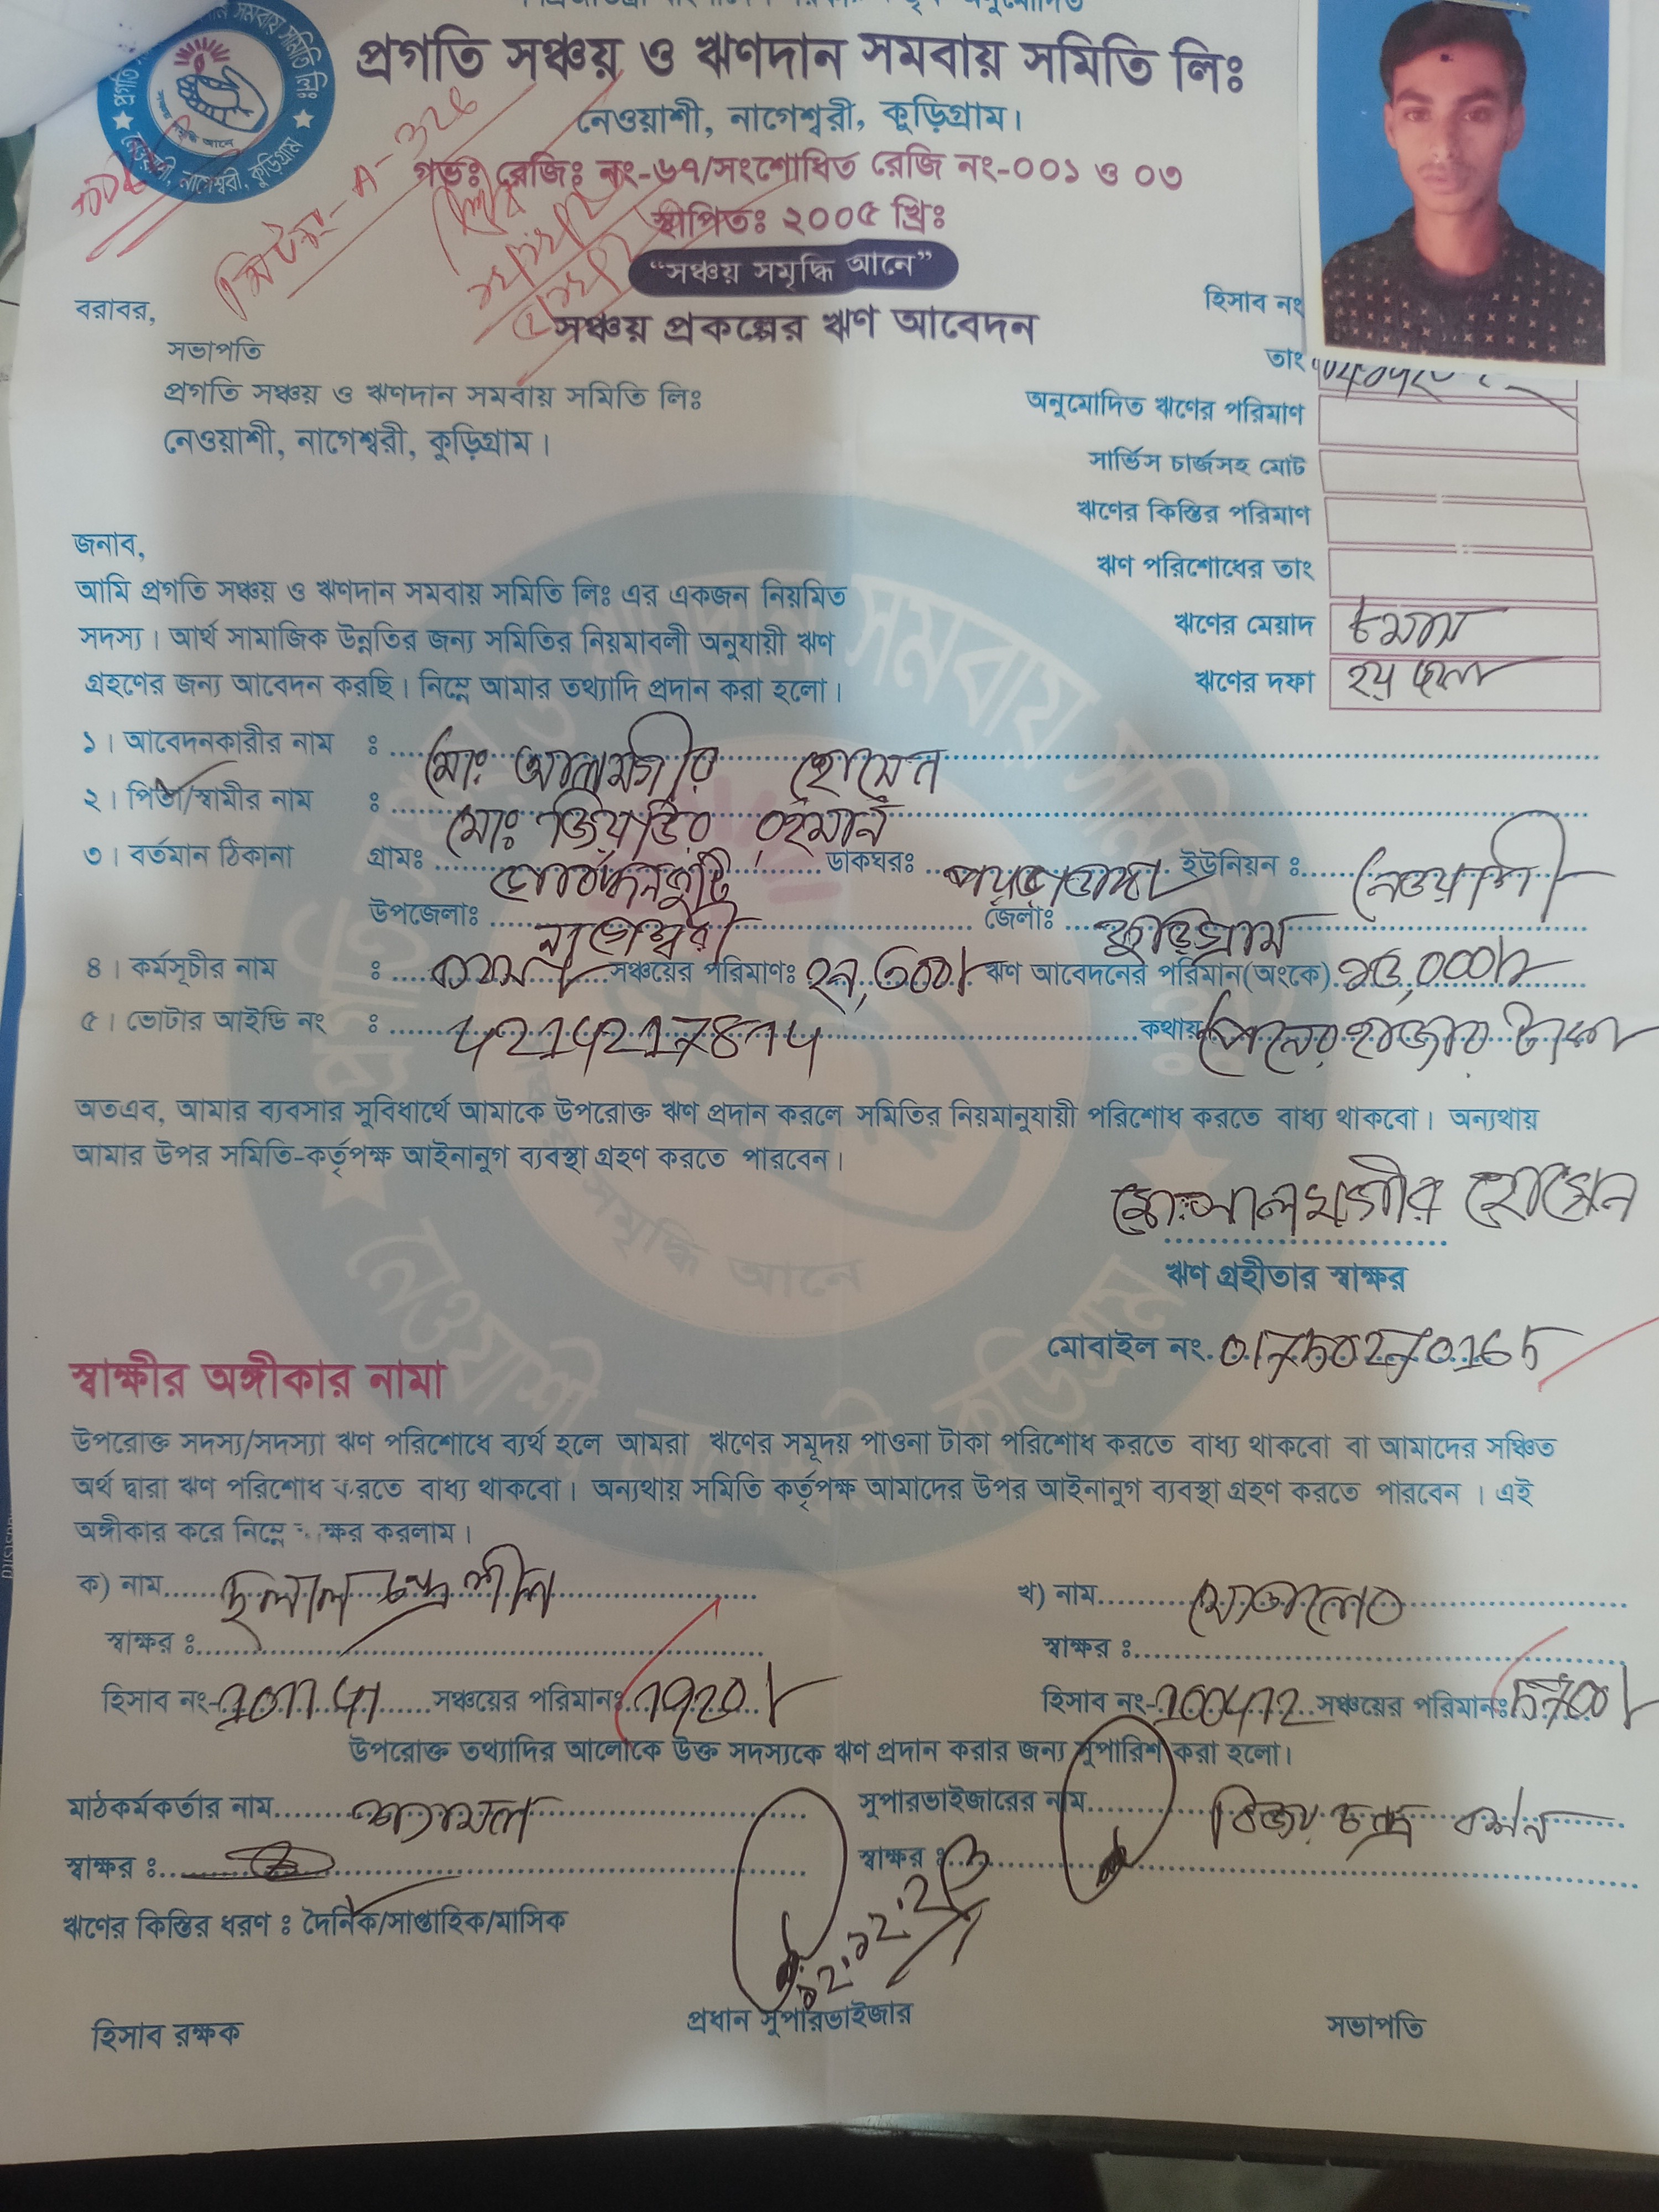 প্রগতি সঞ্চয় ও ঋণদান সমবায় সমিতি লিঃ
নেওয়াশী, নাগেশ্বরী, কুড়িগ্রাম।
গভঃ রেজিঃ নং-৬৭/সংশোধিত রেজি নং-০০১ ও ০৩
স্থাপিতঃ ২০০৫ খ্রিঃ
“সঞ্চয় সমৃদ্ধি আনে”
সঞ্চয় প্রকল্পের ঋণ আবেদন
হিসাব নং
তাং
বরাবর,
সভাপতি
প্রগতি সঞ্চয় ও ঋণদান সমবায় সমিতি লিঃ
নেওয়াশী, নাগেশ্বরী, কুড়িগ্রাম।
অনুমোদিত ঋণের পরিমাণ
সার্ভিস চার্জসহ মোট
ঋণের কিস্তির পরিমাণ
ঋণ পরিশোধের তাং
ঋণের মেয়াদ
ঋণের দফা ২য় দফা
জনাব,
আমি প্রগতি সঞ্চয় ও ঋণদান সমবায় সমিতি লিঃ এর একজন নিয়মিত
সদস্য। আর্থ সামাজিক উন্নতির জন্য সমিতির নিয়মাবলী অনুযায়ী ঋণ
গ্রহণের জন্য আবেদন করছি। নিম্নে আমার তথ্যাদি প্রদান করা হলো।
১। আবেদনকারীর নাম : মোঃ আলমগীর হোসেন
২। পিতা/স্বামীর নাম : মোঃ জিয়াউর রহমান
৩। বর্তমান ঠিকানা গ্রামঃ ডাকঘরঃ পয়ড়াডাঙ্গা ইউনিয়ন : নেওয়াশী
উপজেলাঃ নাগেশ্বরী জেলাঃ কুড়িগ্রাম
৪। কর্মসূচীর নাম : সঞ্চয়ের পরিমাণঃ ঋণ আবেদনের পরিমান(অংকে)
৫। ভোটার আইডি নং : কথায় পনের হাজার টাকা
অতএব, আমার ব্যবসার সুবিধার্থে আমাকে উপরোক্ত ঋণ প্রদান করলে সমিতির নিয়মানুযায়ী পরিশোধ করতে বাধ্য থাকবো। অন্যথায়
আমার উপর সমিতি-কর্তৃপক্ষ আইনানুগ ব্যবস্থা গ্রহণ করতে পারবেন।
মোঃ আলমগীর হোসেন
ঋণ গ্রহীতার স্বাক্ষর
মোবাইল নং.
স্বাক্ষীর অঙ্গীকার নামা
উপরোক্ত সদস্য/সদস্যা ঋণ পরিশোধে ব্যর্থ হলে আমরা ঋণের সমূদয় পাওনা টাকা পরিশোধ করতে বাধ্য থাকবো বা আমাদের সঞ্চিত
অর্থ দ্বারা ঋণ পরিশোধ করতে বাধ্য থাকবো। অন্যথায় সমিতি কর্তৃপক্ষ আমাদের উপর আইনানুগ ব্যবস্থা গ্রহণ করতে পারবেন । এই
অঙ্গীকার করে নিম্নে স্বাক্ষর করলাম।
ক) নাম দুলাল চন্দ্র শীল
খ) নাম মোতালেব
স্বাক্ষর : স্বাক্ষর :
হিসাব নং- সঞ্চয়ের পরিমানঃ হিসাব নং- সঞ্চয়ের পরিমানঃ
উপরোক্ত তথ্যাদির আলোকে উক্ত সদস্যকে ঋণ প্রদান করার জন্য সুপারিশ করা হলো।
মাঠকর্মকর্তার নাম শ্যামল সুপারভাইজারের নাম বিজয় চন্দ্র বর্মন
স্বাক্ষর : স্বাক্ষর :
ঋণের কিস্তির ধরণ : দৈনিক/সাপ্তাহিক/মাসিক
হিসাব রক্ষক প্রধান সুপারভাইজার সভাপতি